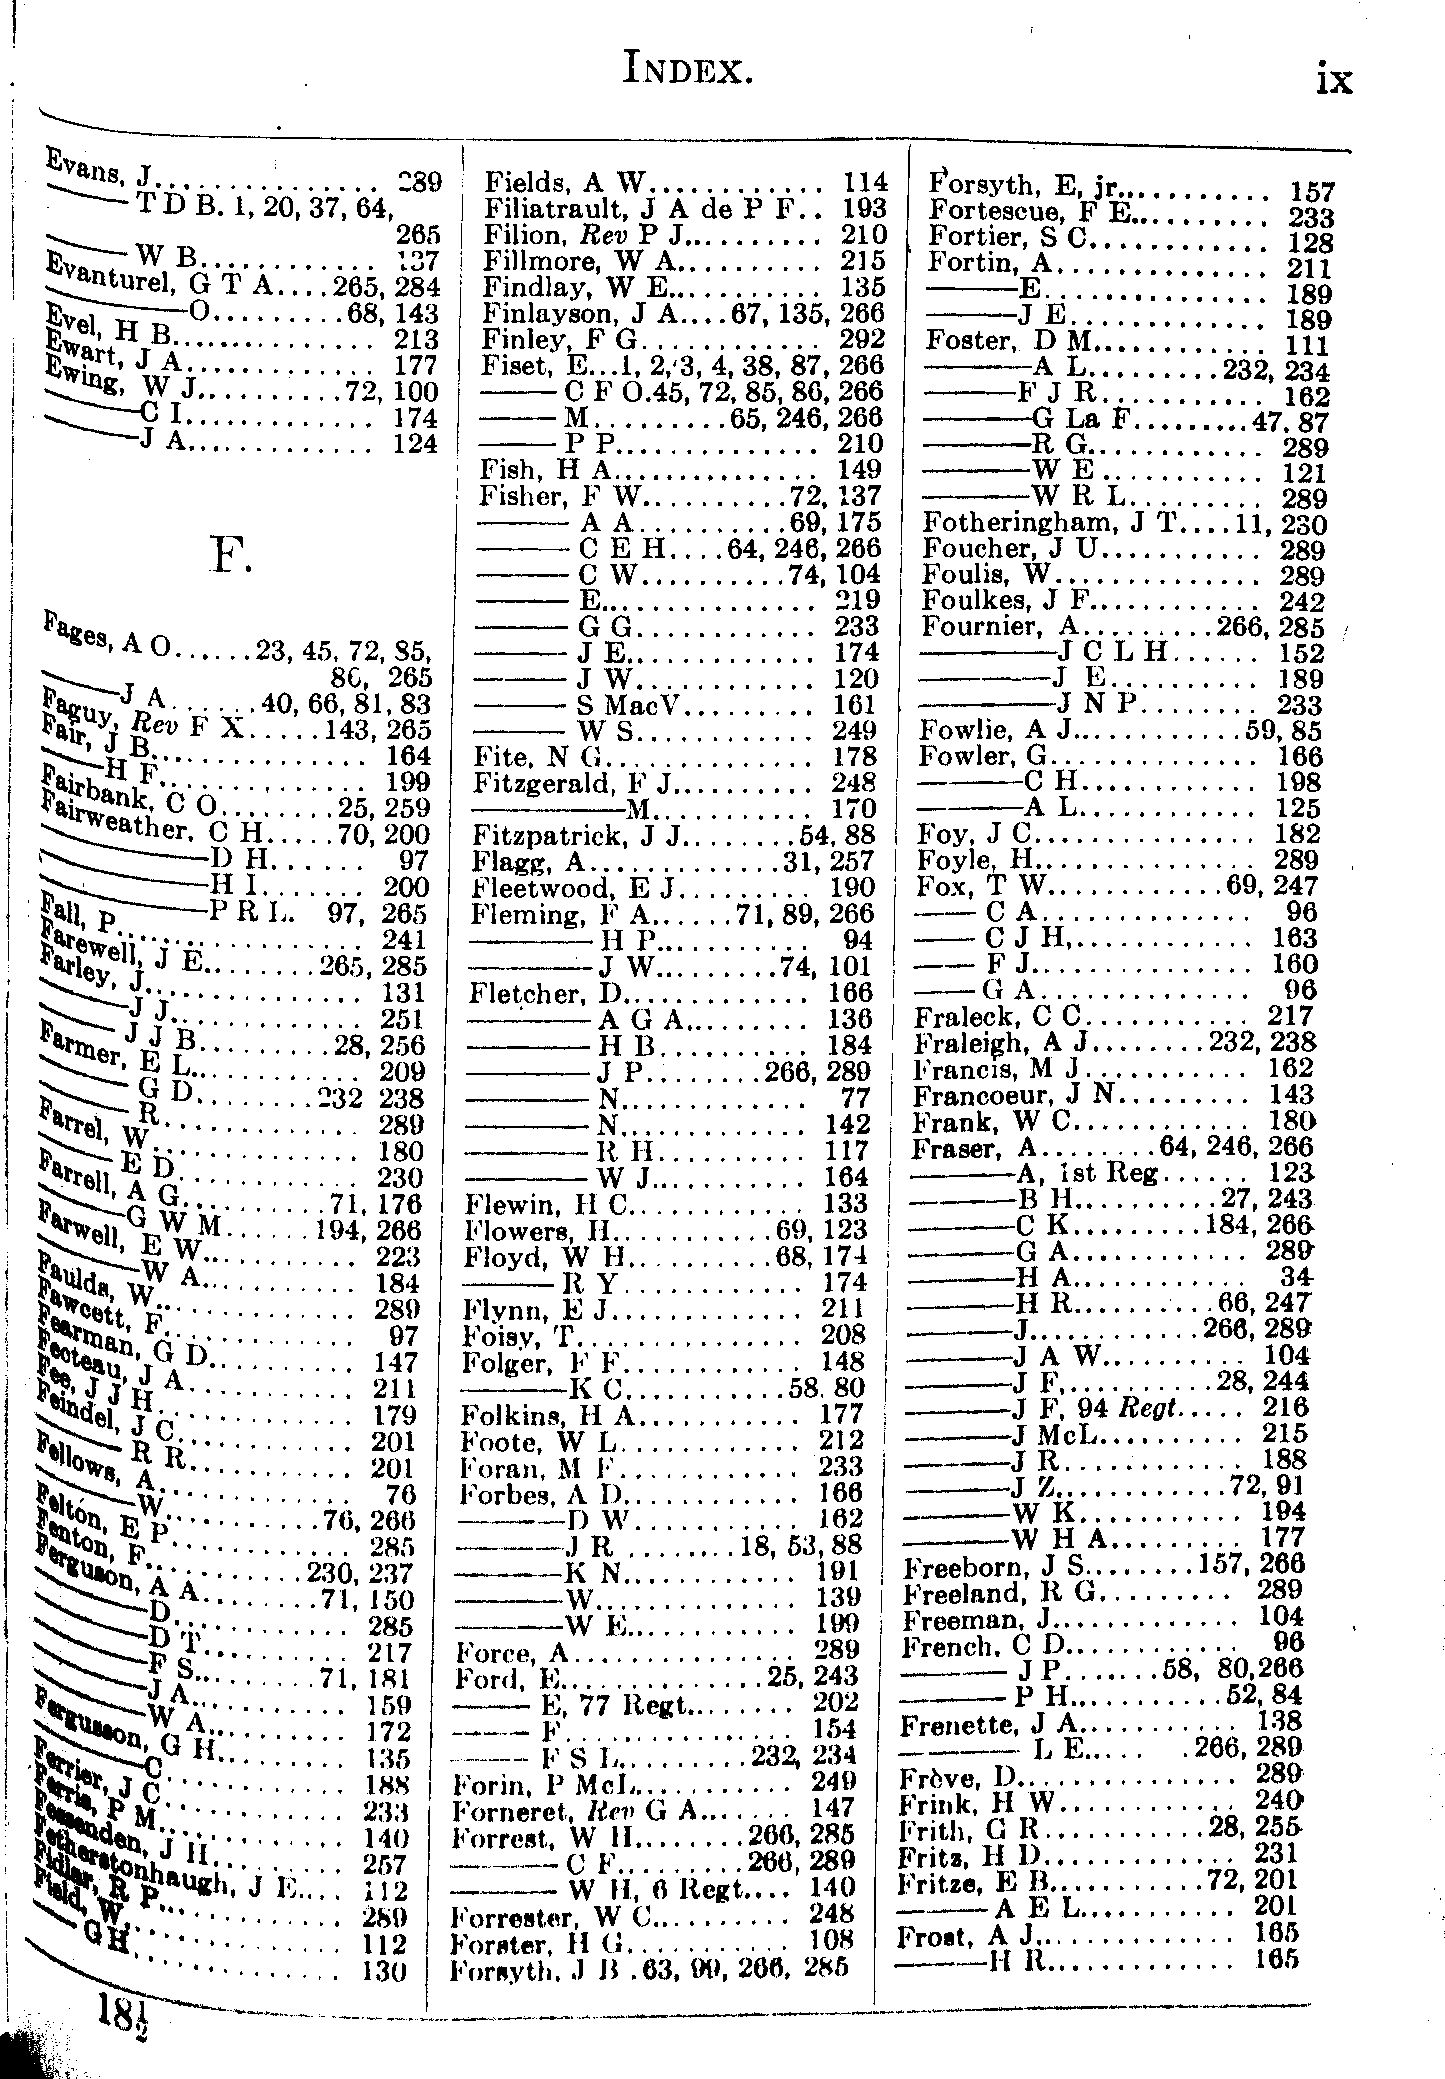 INDEX.
ix
Evans, J............... 289
——T D B. 1, 20, 37, 64,
265
——W B............ 137
Evanturel, G T A....265, 284
——O.........68, 143
Evel, H B.............. 213
Ewart, J A............. 177
Ewing, W J..........72, 100
——C I............. 174
——J A............. 124
F.
Fages, A O......23, 45, 72, 85,
86, 265
——J A......40, 66, 81, 83
Faguy, Rev F X.....143, 265
Fair, J B............... 164
——H F.............. 199
Fairbank, C O........25, 259
Fairweather, C H.....70, 200
——D H...... 97
——H I....... 200
——P R L. 97, 265
Fall, P................. 241
Farewell, J E........265, 285
Farley, J............... 131
——J J............. 251
——J J B.........28, 256
Farmer, E L............ 209
——G D........232 238
——R.............. 289
Farrel, W.............. 180
——E D............ 230
Farrell, A G..........71, 176
——G W M......194, 266
Farwell, E W........... 223
——W A........... 184
Faulds, W.............. 289
Fawcett, F............. 97
Fearman, G D.......... 147
Fecteau, J A............ 211
Fee, J J H.............. 179
Feindel, J C............ 201
——R R........... 201
Fellows, A............. 76
——W...........76, 266
Felton, E P............. 285
Fenton, F...........230, 237
Ferguson, A A........71, 150
——D............ 285
——D T.......... 217
——F S........71, 181
——J A.......... 159
——W A......... 172
Fergusson, G H......... 135
——C........... 188
Ferrier, J C............. 233
Ferris, P M............. 140
Fessenden, J H......... 257
Fetherstonhaugh, J E.... 112
Fidler, R P............. 289
Field, W............... 112
——G H.............. 130
18½
Fields, A W............ 114
Filiatrault, J A de P F.. 193
Filion, Rev P J.......... 210
Fillmore, W A.......... 215
Findlay, W E........... 135
Finlayson, J A....67, 135, 266
Finley, F G............. 292
Fiset, E...1, 2, 3, 4, 38, 87, 266
——C F O.45, 72, 85, 86, 266
——M.........65, 246, 266
——P P.............. 210
Fish, H A.............. 149
Fisher, F W..........72, 137
——A A..........69, 175
——C E H....64, 246, 266
——C W..........74, 104
——E............... 219
——G G............. 233
——J E............. 174
——J W............. 120
——S MacV......... 161
——W S............ 249
Fite, N G............... 178
Fitzgerald, F J.......... 248
——M........... 170
Fitzpatrick, J J........54, 88
Flagg, A.............31, 257
Fleetwood, E J......... 190
Fleming, F A......71, 89, 266
——H P........... 94
——J W.........74, 101
Fletcher, D............. 166
——A G A......... 136
——H B........... 184
——J P........266, 289
——N............. 77
——N............. 142
——R H........... 117
——W J........... 164
Flewin, H C............ 133
Flowers, H...........69, 123
Floyd, W H..........68, 174
——R Y............. 174
Flynn, E J.............. 211
Foisy, T................ 208
Folger, F F............. 148
——K C...........58. 80
Folkins, H A........... 177
Foote, W L............. 212
Foran, M F............. 233
Forbes, A D............ 166
——D W............ 162
——J R ........18, 53, 88
——K N............ 191
——W.............. 139
——W E............ 199
Force, A................ 289
Ford, E..............25, 243
——E, 77 Regt........ 202
——F................ 154
——F S L.........232, 234
Forin, P McL........... 249
Forneret, Rev G A....... 147
Forrest, W H........266, 285
——C F.........266, 289
——W H, 6 Regt.... 140
Forrester, W C.......... 248
Forster, H G............ 108
Forsyth, J B .63, 99, 266, 285
Forsyth, E, jr........... 157
Fortescue, F E.......... 233
Fortier, S C............. 128
Fortin, A............... 211
——E................ 189
——J E.............. 189
Foster, D M............ 111
——A L.........232, 234
——F J R........... 162
——G La F.........47. 87
——R G............. 289
——W E ........... 121
——W R L......... 289
Fotheringham, J T....11, 230
Foucher, J U........... 289
Foulis, W............... 289
Foulkes, J F............ 242
Fournier, A.........266, 285
——J C L H...... 152
——J E.......... 189
——J N P........ 233
Fowlie, A J............59, 85
Fowler, G............... 166
——C H............ 198
——A L............ 125
Foy, J C................ 182
Foyle, H................ 289
Fox, T W............69, 247
——C A.............. 96
——C J H,............ 163
——F J............... 160
——G A.............. 96
Fraleck, C C............ 217
Fraleigh, A J........232, 238
Francis, M J............ 162
Francoeur, J N......... 143
Frank, W C............ 180
Fraser, A........64, 246, 266
——A, 1st Reg...... 123
——B H..........27, 243
——C K.........184, 266
——G A............ 289
——H A............ 34
——H R..........66, 247
——J............266, 289
——J A W.......... 104
——J F,..........28, 244
——J F, 94 Regt..... 216
——J McL.......... 215
——J R............. 188
——J Z............72, 91
——W K........... 194
——W H A......... 177
Freeborn, J S........157, 266
Freeland, R G.......... 289
Freeman, J............. 104
French, C D............ 96
——J P.......58, 80,266
——P H...........52, 84
Frenette, J A........... 138
——L E..... .266, 289
Frève, D............... 289
Frink, H W............ 240
Frith, G R...........28, 255
Fritz, H D.............. 231
Fritze, E B...........72, 201
——A E L........... 201
Frost, A J.............. 165
——H R............. 165